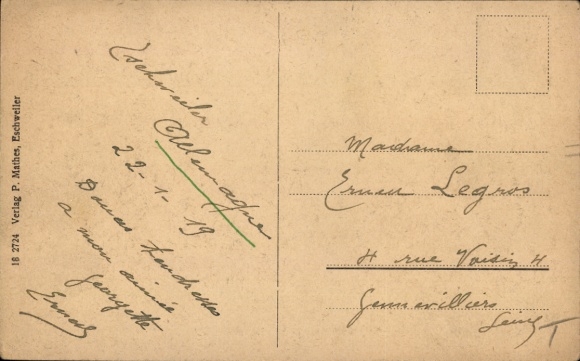 18 2724 Verlag P. Mathes, Eschweiler
Eschweiler
Allemagne
22-1-19
Douces tendresses
a mon aimée
Georgette
Ernest
Madame
Ernest Legros
4 rue Voisin 4
Gennevilliers
Seine